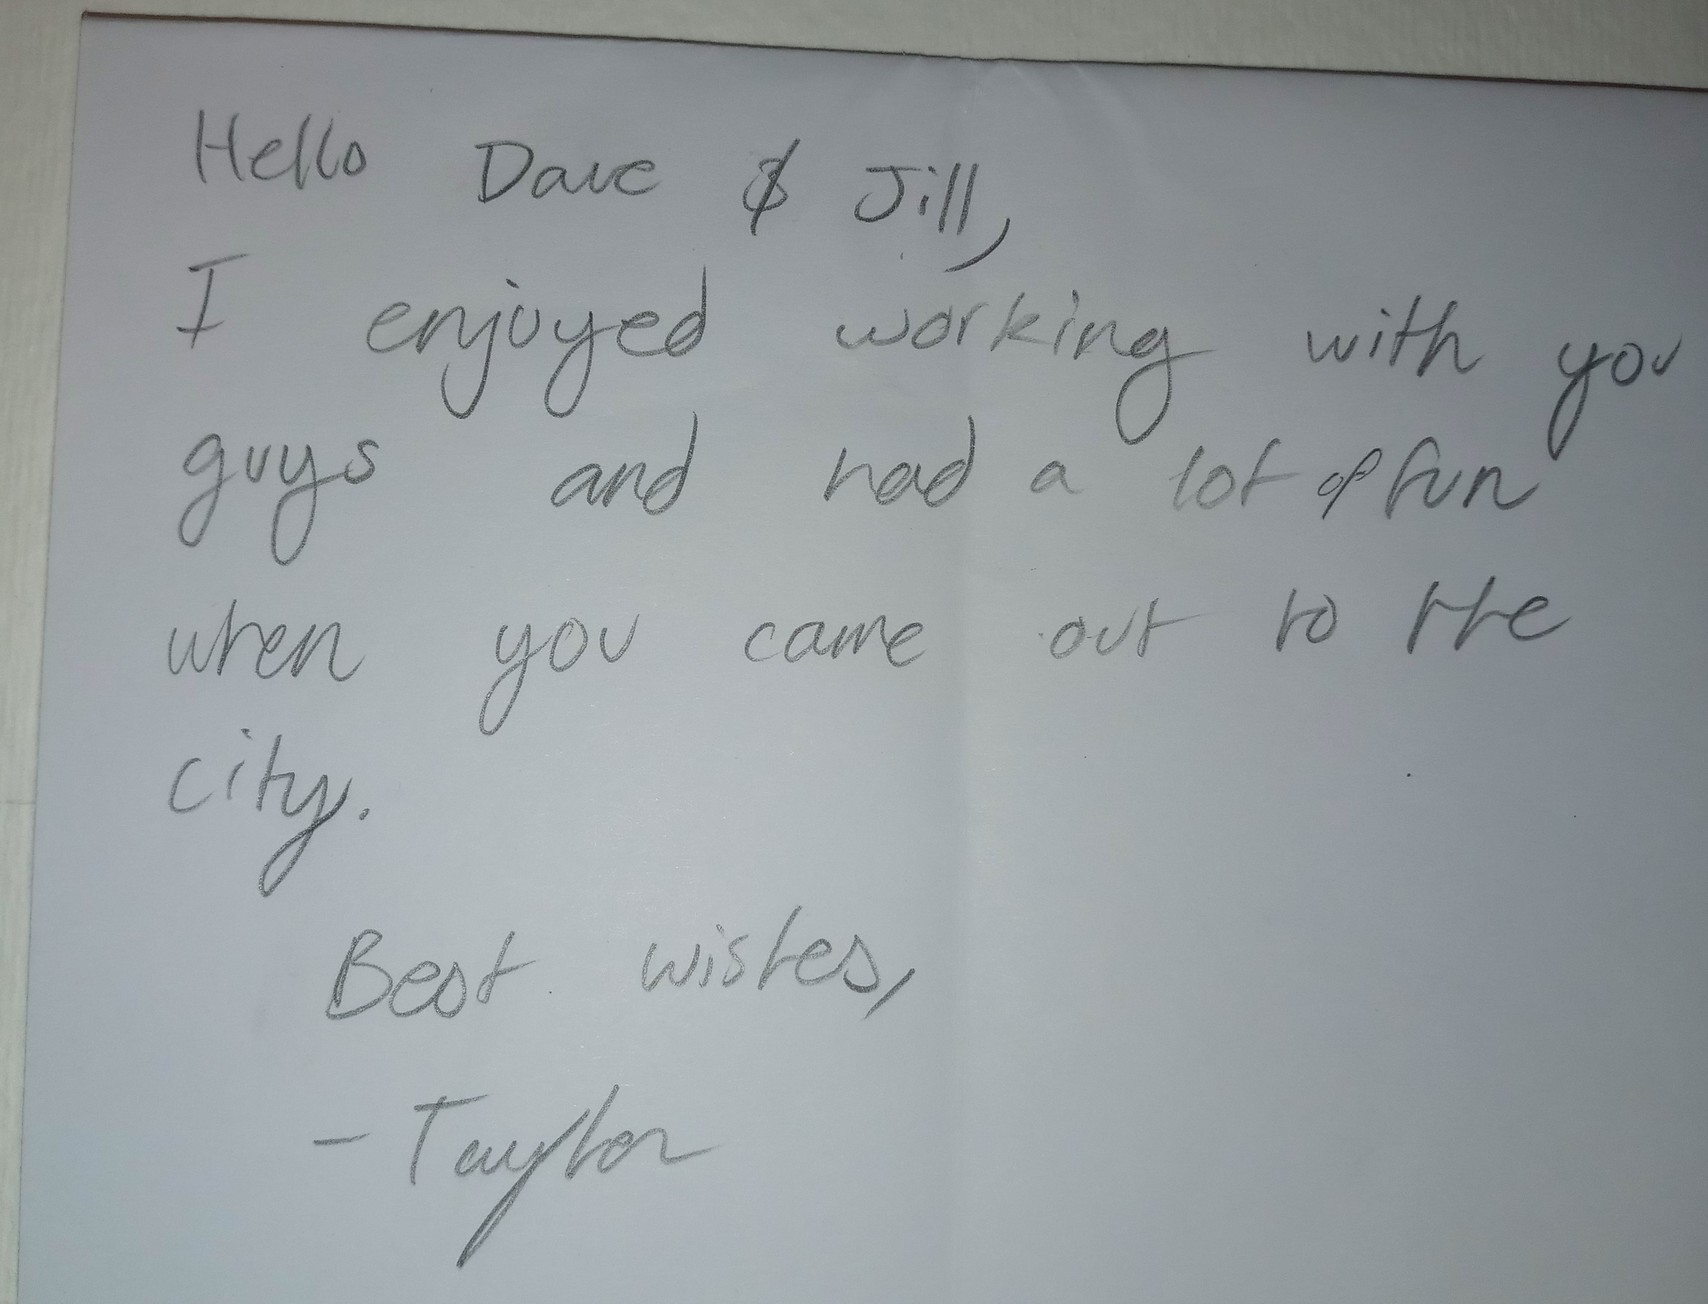 Hello Dave & Jill,
I enjoyed working with you
guys and had a lot of fun
when you came out to the
city.
Best wishes,
- Taylor